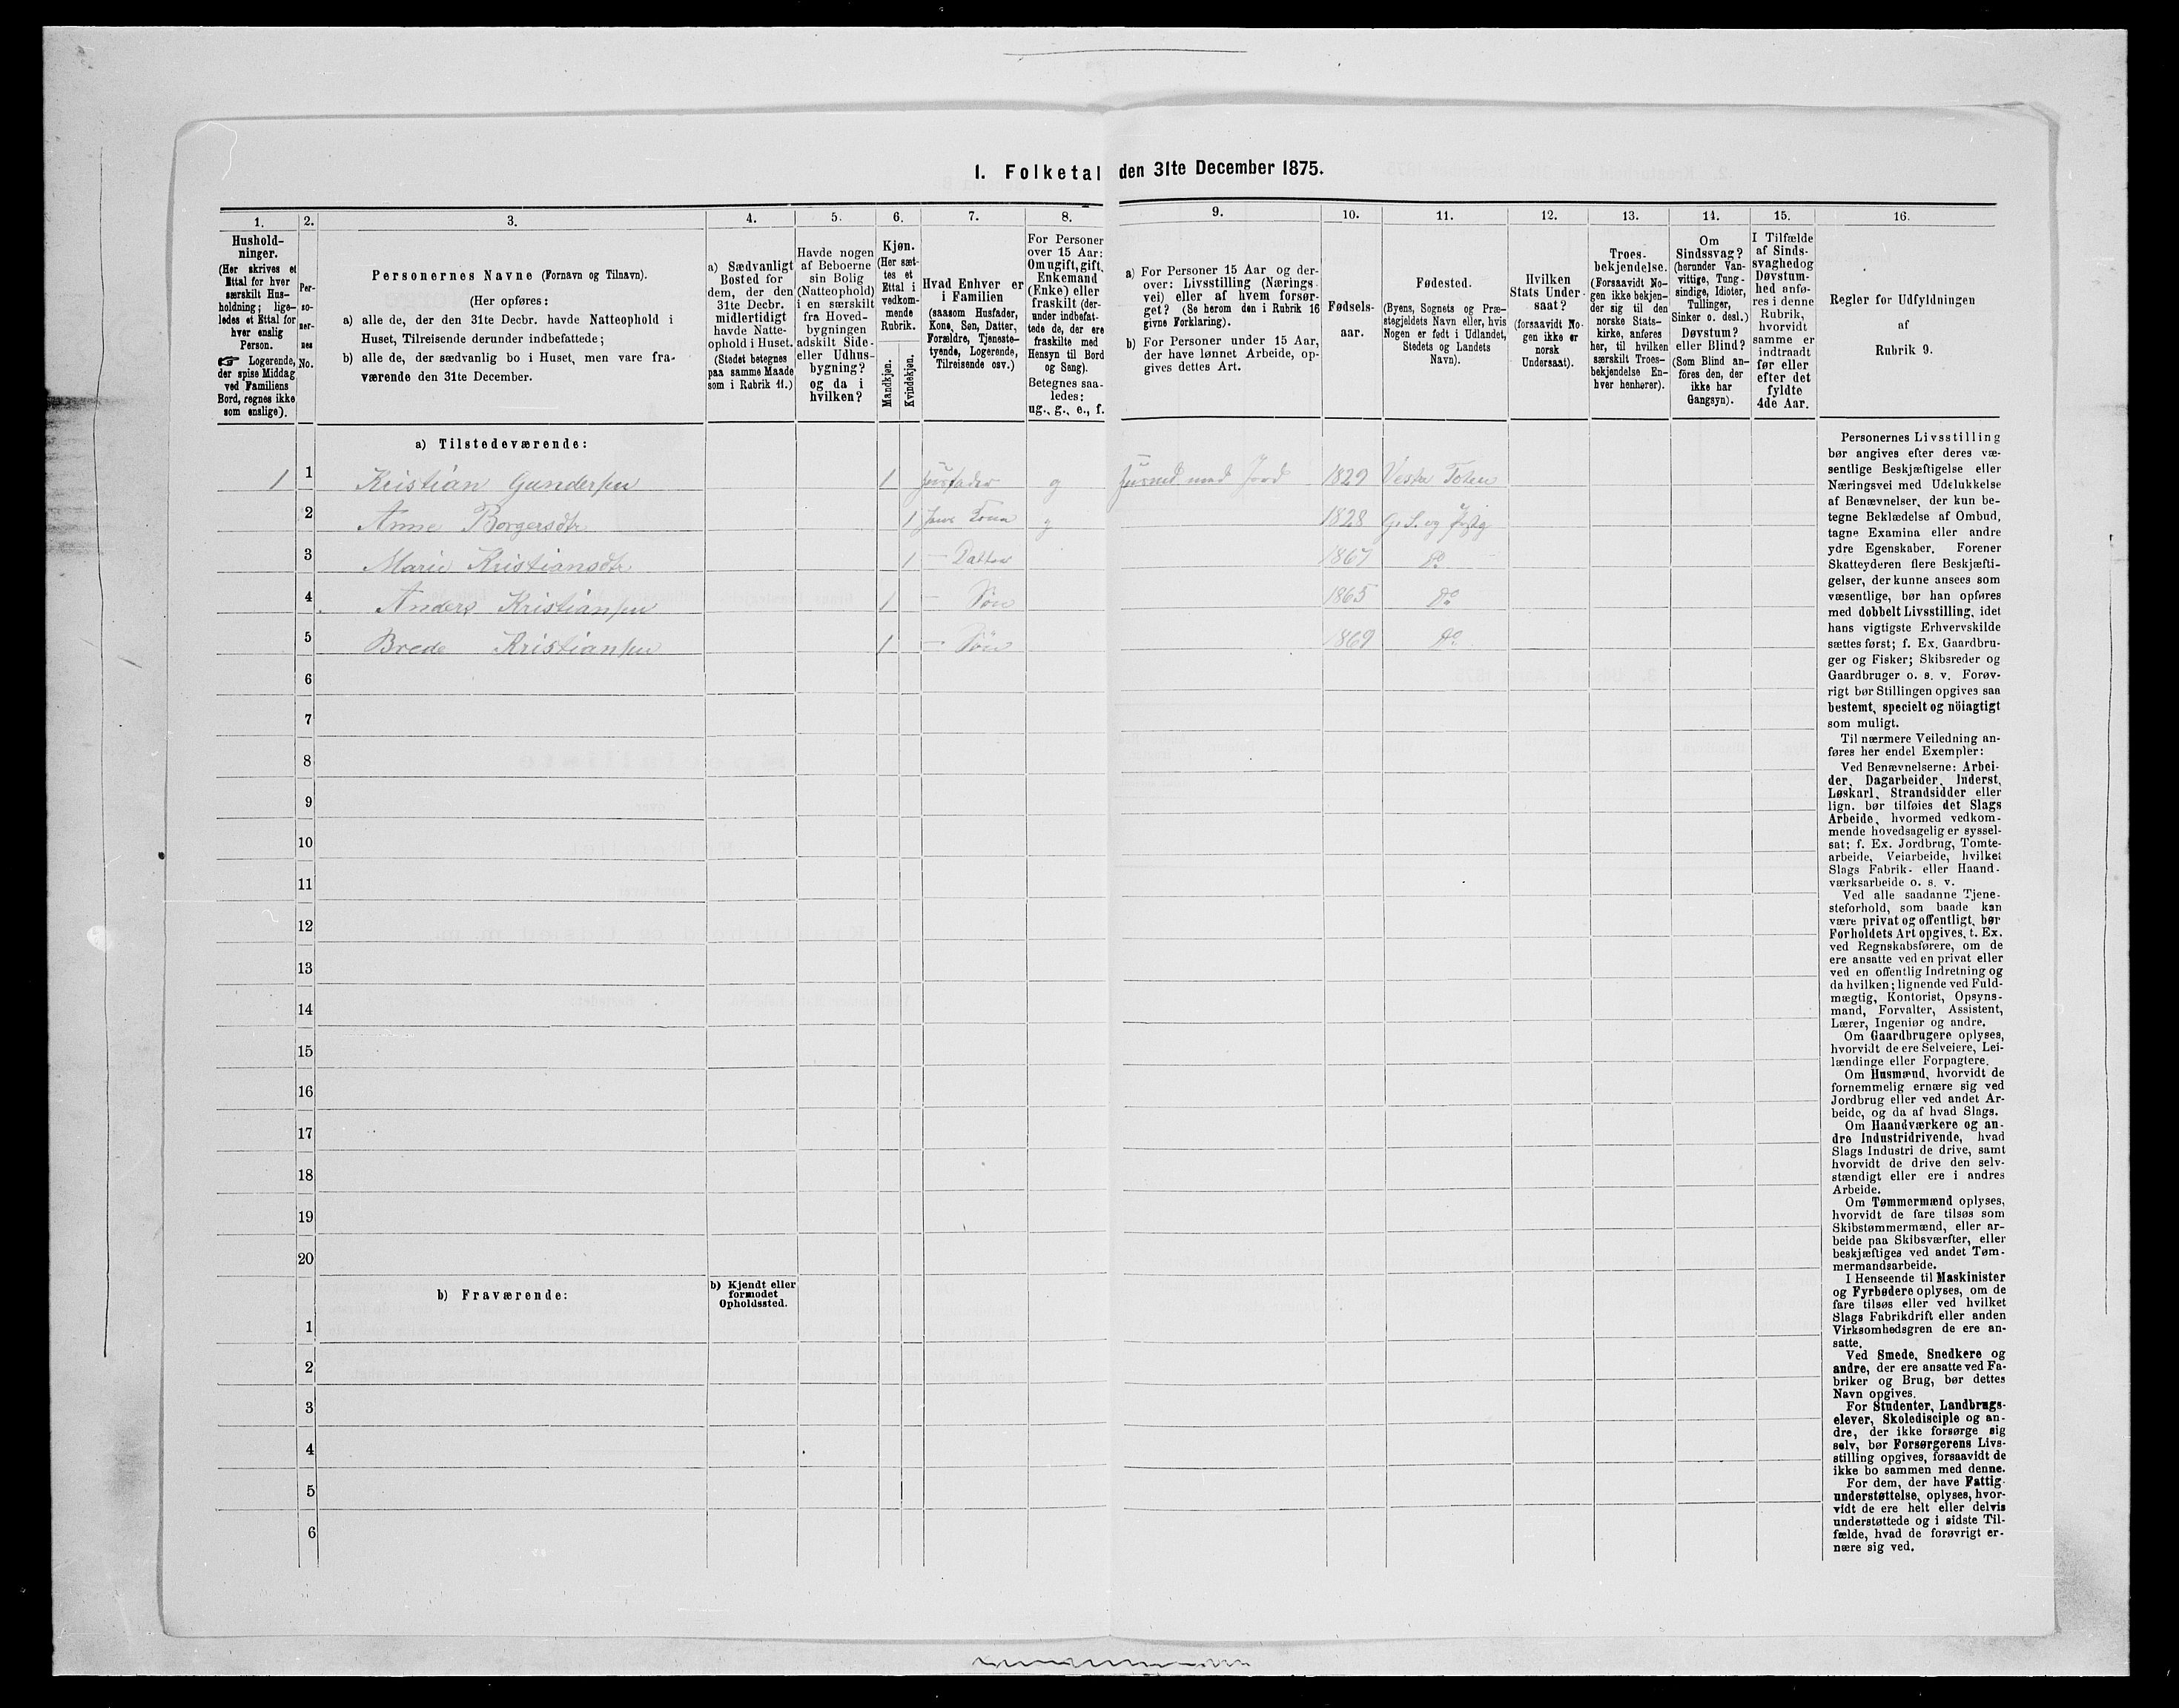 I. Folketal den 31te December 1875.
1.
Hushold-
ninger.
(Her skrives et
Ettal for hver
særskilt Hus-
holdning; lige-
ledes et Ettal for
hver enslig
Person.
☞ Logerende,
der spise Middag
ved Familiens
Bord, regnes ikke
som enslige).
2.
Per-
so-
ner-
nes
No.
3.
Personernes Navne (Fornavn og Tilnavn).
(Her opføres:
a) alle de, der den 31te Decbr. havde Natteophold i
Huset, Tilreisende derunder indbefattede;
b) alle de, der sædvanlig bo i Huset, men vare fra-
værende den 31te December.
4.
a) Sædvanligt
Bosted for
dem, der den
31te Decbr.
midlertidigt
havde Natte-
ophold i Huset.
(Stedet betegnes
paa samme Maade
som i Rubrik 11.)
5.
Havde nogen
af Beboerne
sin Bolig
(Natteophold)
i en særskilt
fra Hoved-
bygningen
adskilt Side-
eller Udhus-
bygning?
og da i
hvilken?
6.
Kjøn.
(Her sæt-
tes et
Ettal i
vedkom-
mende
Rubrik.
Mandkjøn.
Kvindekjøn.
7.
Hvad Enhver er
i Familien
(saasom Husfader,
Kone, Søn, Datter,
Forældre, Tjeneste-
tyende, Logerende,
Tilreisende osv.)
8.
For Personer
over 15 Aar:
Om ugift, gift,
Enkemand
(Enke) eller
fraskilt (der-
under indbefat-
tede de, der ere
fraskilte med
Hensyn til Bord
og Seng).
Betegnes saa-
ledes:
ug., g., e., f.
9.
a) For Personer 15 Aar og der-
over: Livsstilling (Nærings-
vei) eller af hvem forsør-
get? (Se herom den i Rubrik 16
givne Forklaring).
b) For Personer under 15 Aar,
der have lønnet Arbeide, op-
gives dettes Art.
10.
Fødsels-
aar.
11.
Fødested.
(Byens, Sognets og Præ-
stegjeldets Navn eller, hvis
Nogen er født i Udlandet,
Stedets og Landets
Navn).
12.
Hvilken
Stats Under-
saat?
(forsaavidt No-
gen ikke er
norsk
Undersaat).
13.
Troes-
bekjendelse.
(Forsaavidt No-
gen ikke bekjen-
der sig til den
norske Stats-
kirke, anføres
her, til hvilken
særskilt Troes-
bekjendelse En-
hver henhører).
14.
Om
Sindssvag?
(herunder Van-
vittige, Tung-
sindige, Idioter,
Tullinger,
Sinker o. desl.)
Døvstum?
eller Blind?
(Som Blind an-
føres den, der
ikke har
Gangsyn).
15.
I Tilfælde
af Sinds-
svaghed og
Døvstum-
hed anfø-
res i denne
Rubrik,
hvorvidt
samme er
indtraadt
før eller
efter det
fyldte
4de Aar.
16.
Regler for Udfyldningen
af
Rubrik 9.
a) Tilstedeværende:
1 1 Kristian Gundersen 1 Husfader g Husmd. med Jord 1829 Vestre Toten
2 Anne Borgersdtr 1 hans Kone g 1828
3 Marie Kristiansdtr 1 — Datter 1867 Do
4 Anders Kristiansen 1 — Søn 1865 Do
5 Brede Kristiansen 1 — Søn 1869 Do
6
7
8
9
10
11
12
13
14
15
16
17
18
19
20
b) Fraværende:
b) Kjendt eller
formodet
Opholdssted.
1
2
3
4
5
6
Personernes Livsstilling
bør angives efter deres væ-
sentlige Beskjæftigelse eller
Næringsvei med Udelukkelse
af Benævnelser, der kun be-
tegne Beklædelse af Ombud,
tagne Examina eller andre
ydre Egenskaber. Forener
Skatteyderen flere Beskjæfti-
gelser, der kunne ansees som
væsentlige, bør han opføres
med dobbelt Livsstilling, idet
hans vigtigste Erhvervskilde
sættes først; f. Ex. Gaardbru-
ger og Fisker; Skibsreder og
Gaardbruger o. s. v. Forøv-
rigt bør Stillingen opgives saa
bestemt, specielt og nöiagtigt
som muligt.
Til nærmere Veiledning an-
føres her endel Exempler:
Ved Benævnelserne: Arbei-
der, Dagarbeider, Inderst,
Løskarl, Strandsidder eller
lign. bør tilføies det Slags
Arbeide, hvormed vedkom-
mende hovedsagelig er syssel-
sat; f. Ex. Jordbrug, Tomte-
arbeide, Veiarbeide, hvilket
Slags Fabrik- eller Haand-
værksarbeide o. s. v.
Ved alle saadanne Tjene-
steforhold, som baade kan
være privat og offentligt, bør
Forholdets Art opgives, t. Ex.
ved Regnskabsførere, om de
ere ansatte ved en privat eller
ved en offentlig Indretning og
da hvilken; lignende ved Fuld-
mægtig, Kontorist, Opsyns-
mand, Forvalter, Assistent,
Lærer, Ingeniør og andre.
Om Gaardbrugere oplyses,
hvorvidt de ere Selveiere, Lei-
lændinge eller Forpagtere.
Om Husmænd, hvorvidt de
fornemmelig ernære sig ved
Jordbrug eller ved andet Ar-
beide, og da af hvad Slags.
Om Haandværkere og an-
dre Industridrivende, hvad
Slags Industri de drive, samt
hvorvidt de drive den selv-
stændigt eller ere i andres
Arbeide.
Om Tømmermænd oplyses,
hvorvidt de fare tilsøs som
Skibstømmermænd, eller ar-
beide paa Skibsværfter, eller
beskjæftiges ved andet Tøm-
mermandsarbeide.
I Henseende til Maskinister
og Fyrbødere oplyses, om de
fare tilsøs eller ved hvilket
Slags Fabrikdrift eller anden
Virksomhedsgren de ere an-
satte.
Ved Smede, Snedkere og
andre, der ere ansatte ved Fa-
briker og Brug, bør dettes
Navn opgives.
For Studenter, Landbrugs-
elever, Skoledisciple og an-
dre, der ikke forsørge sig
selv, bør Forsørgerens Livs-
stilling opgives, forsaavidt de
ikke bo sammen med denne.
For dem, der have Fattig-
understøttelse, oplyses, hvor-
vidt de ere helt eller delvis
understøttede og i sidste Til-
fælde, hvad de forøvrigt er-
nære sig ved.